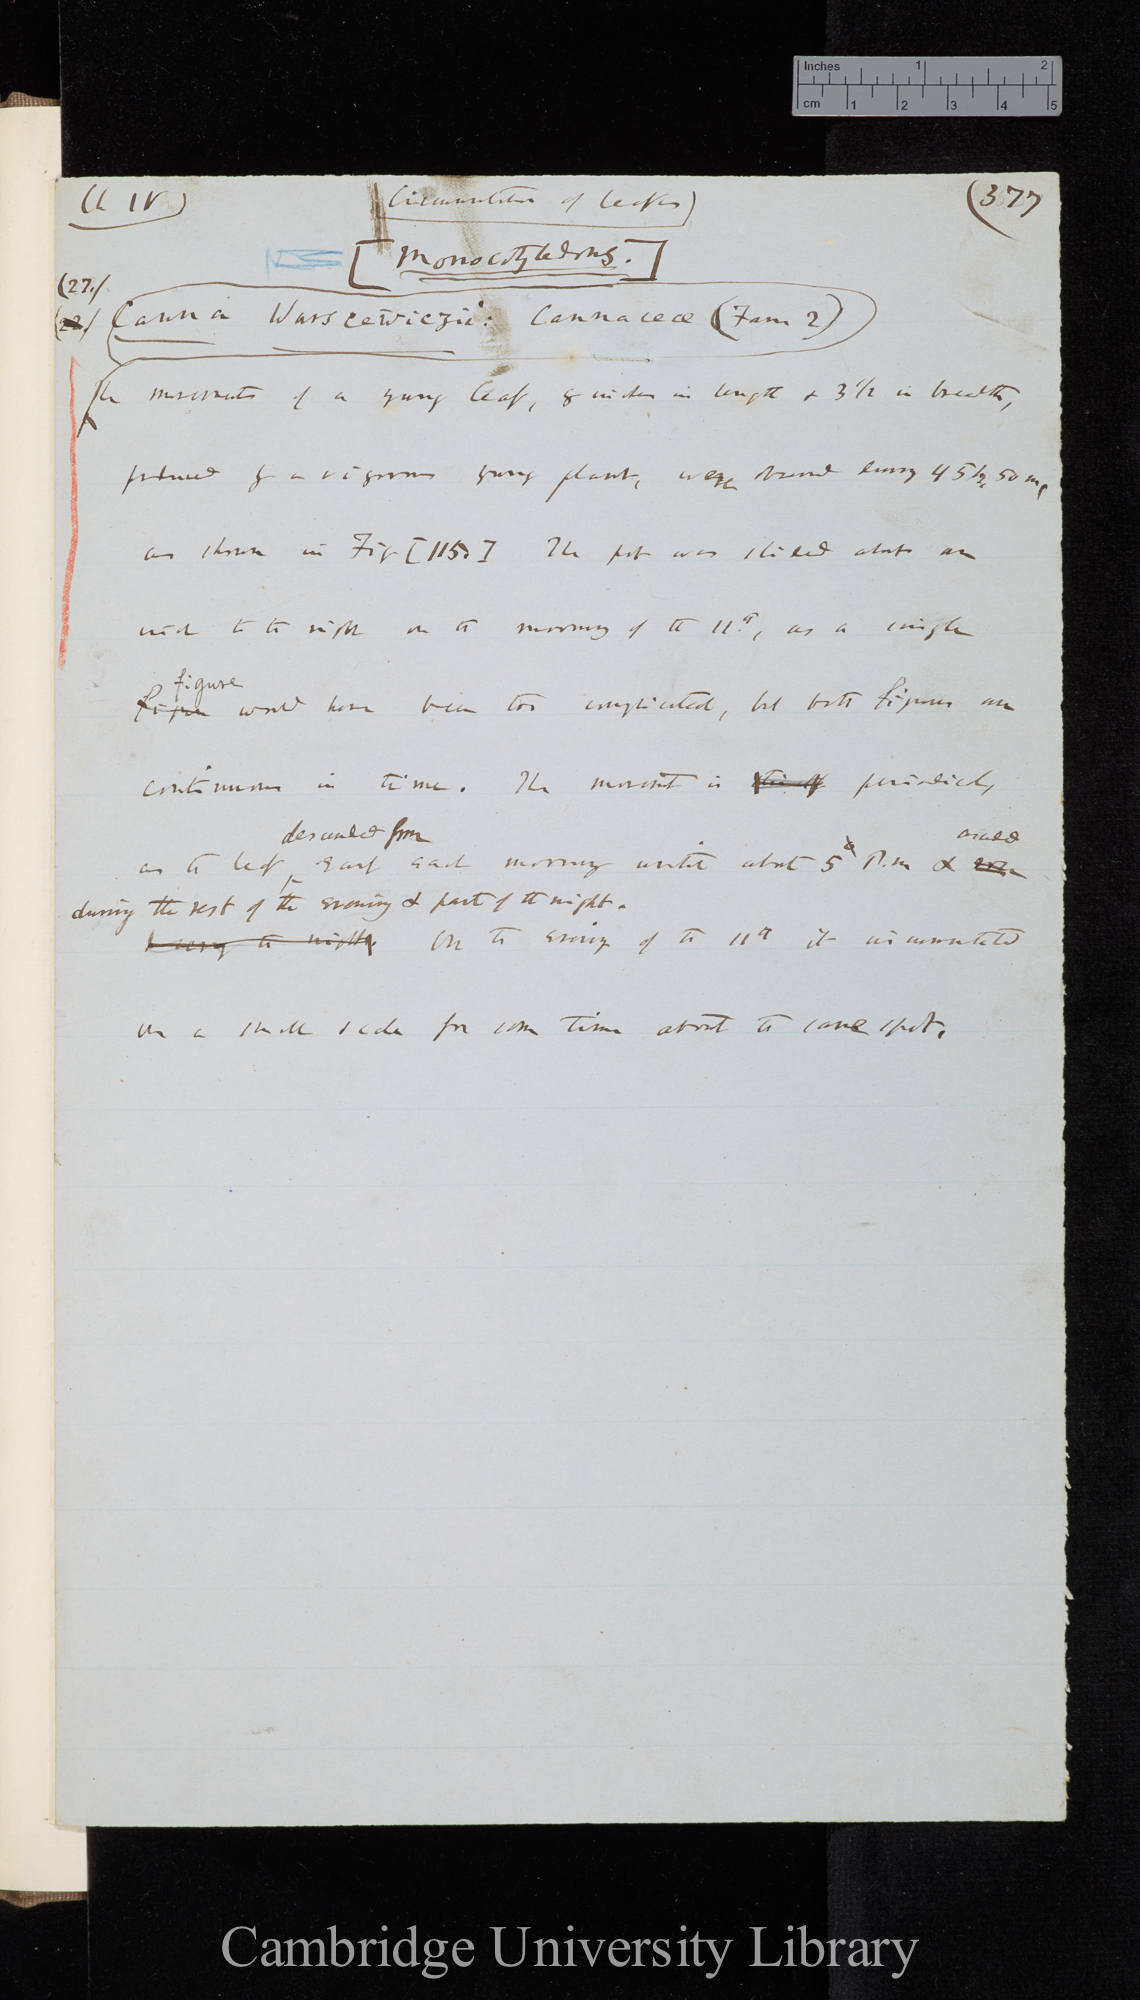 Inches 1 2
cm 1 2 3 4 5
Ch IV) Circumnutation of leaves) (377
[Monocotyledons.]
(27.)
Canna Warscewiczii: Cannaceæ (Fam 2)
The movements of a young leaf, 8 inches in length & 3 1/2 in breadth,
produced by a vigorous young plant, were observed during 45 h, 50 m,
as shown in Fig [115.] The pot was slided about an
inch to the right on the morning of the 11th, as a single
figure
figure would have been too complicated, but both figures are
continuous in time. The movement is periodical,
descended from
as the leaf early each morning until about 5 P.m &
during the rest of the evening & part of the night.
On the evening of the 11th it circumnutated
on a small scale for some time about the same spot.
Cambridge University Library